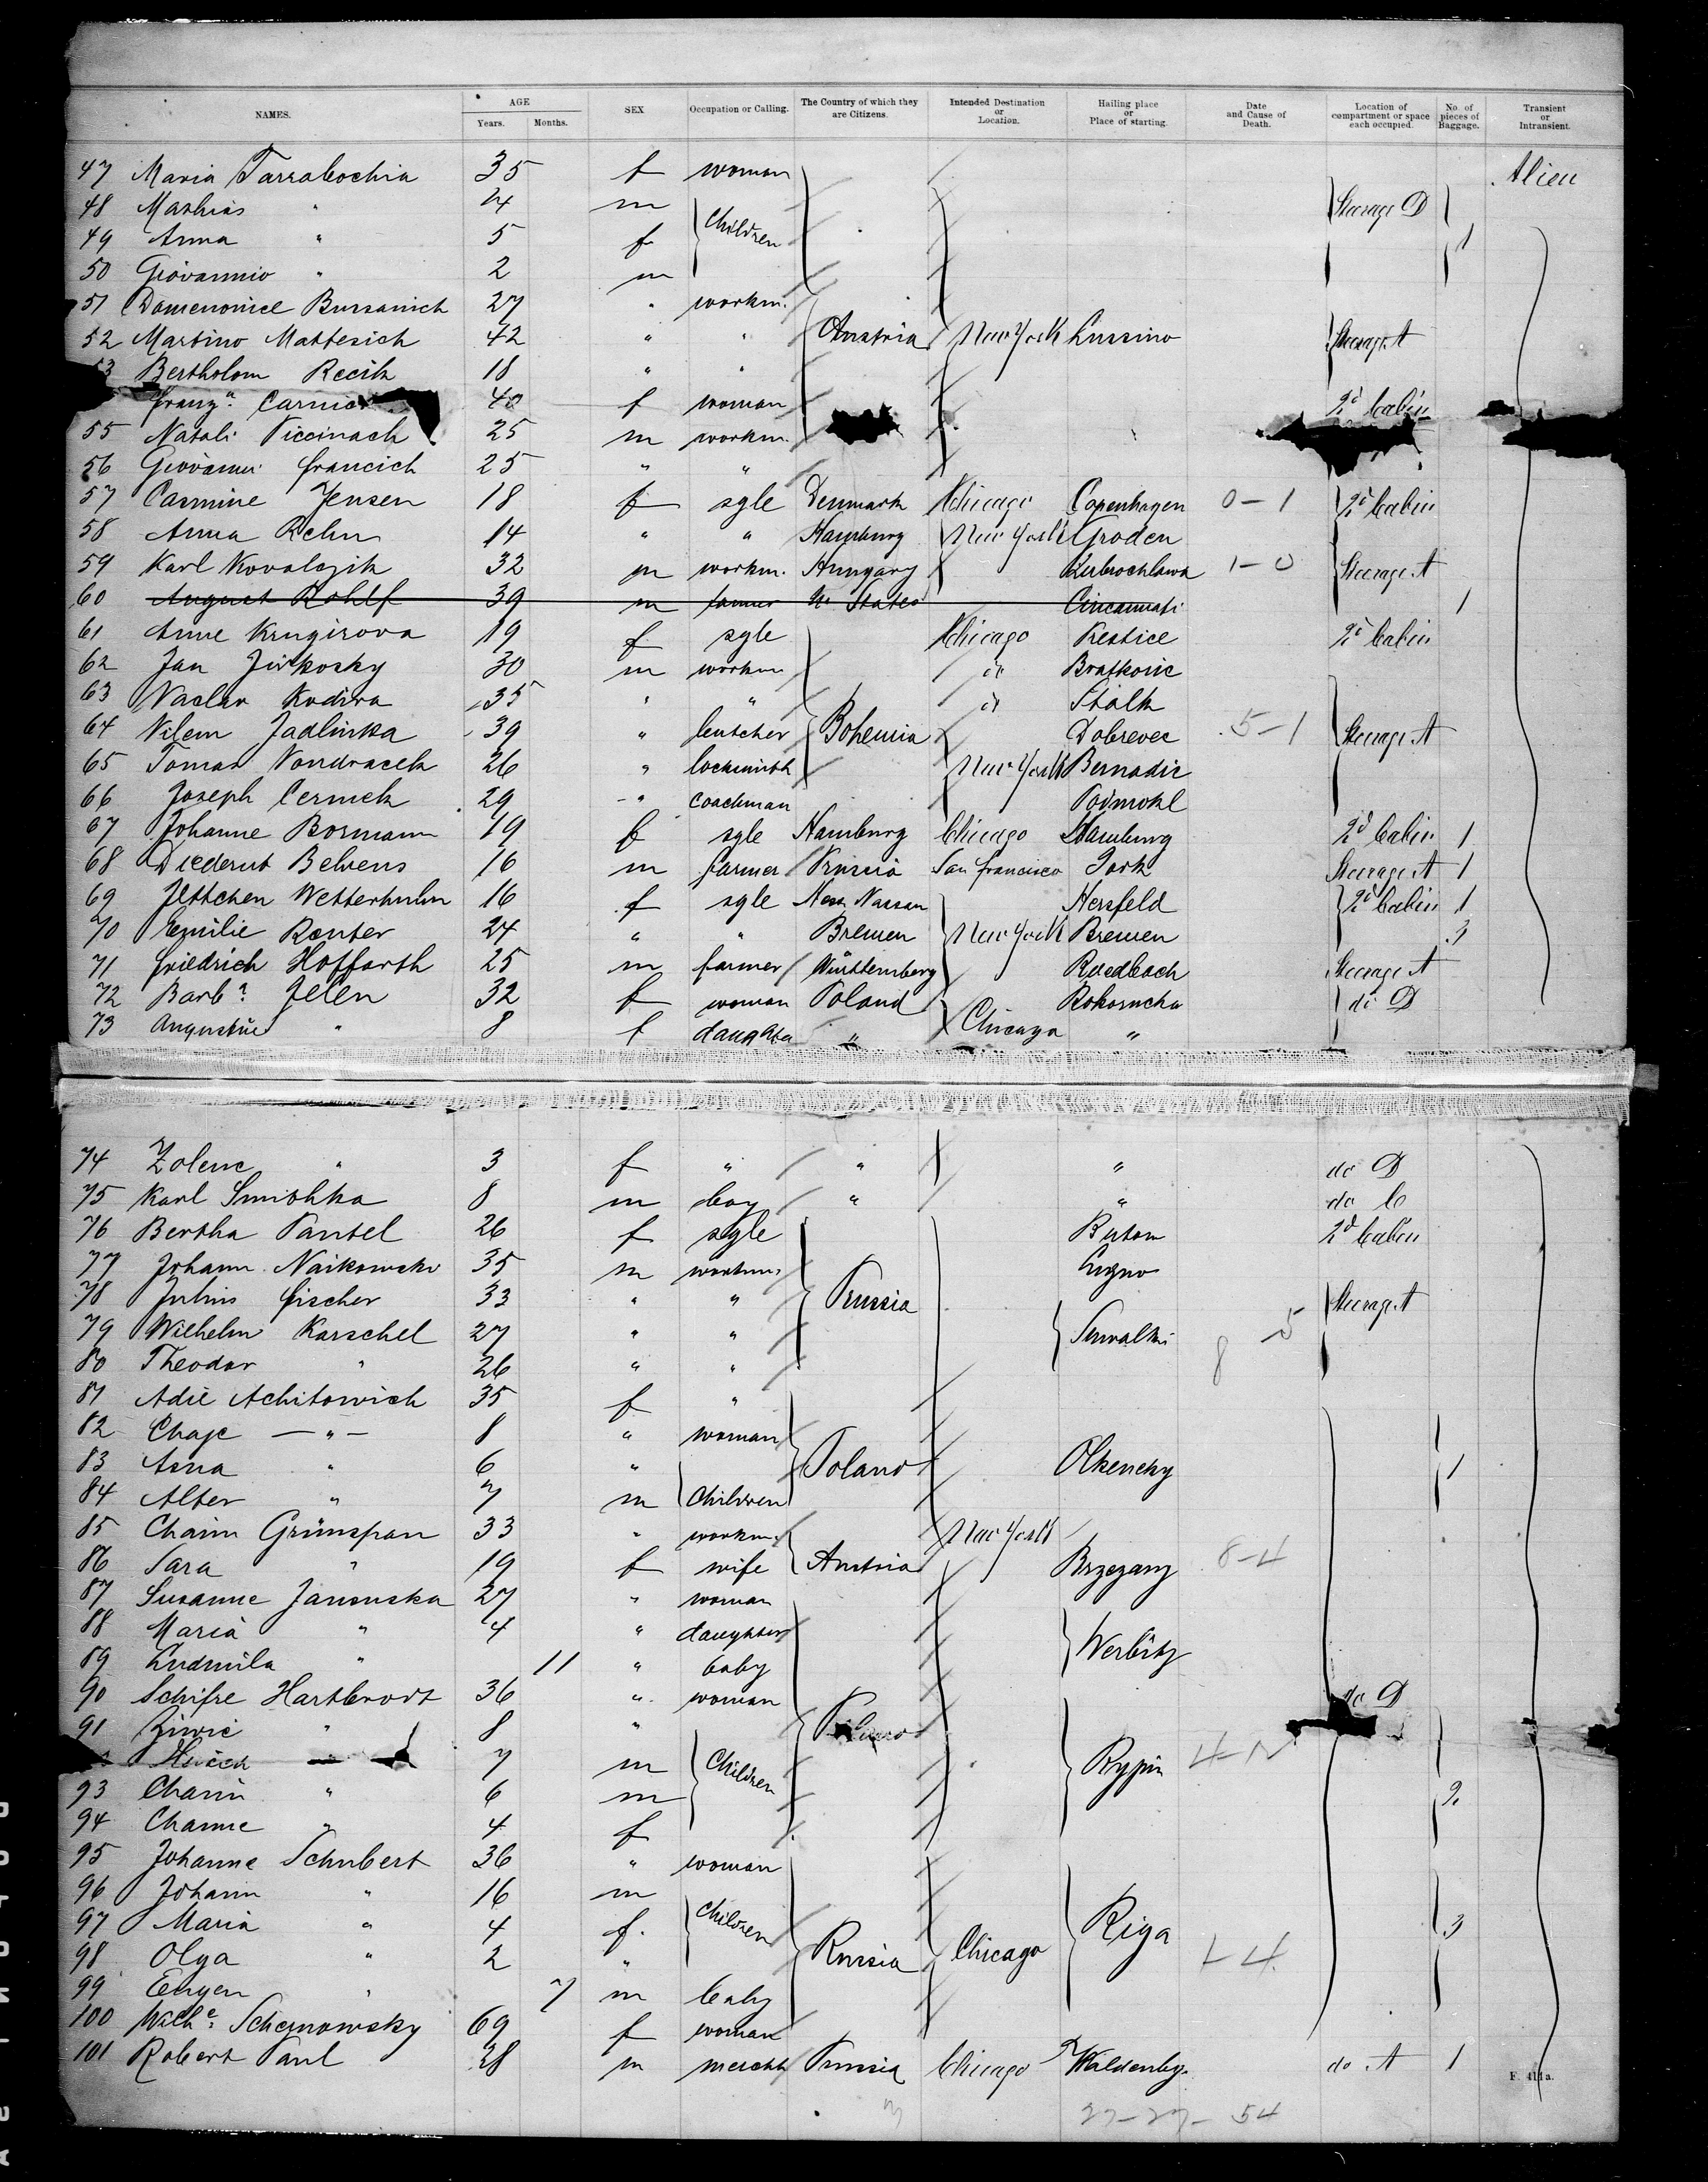 NAMES. AGE Years. Months. SEX Occupation or Calling. The Country of which they are Citizens. Intended Destination or Location. Hailing place or Place of starting. Date and Cause of Death. Location of compartment or space each occupied. No. of pieces of Baggage. Transient or Intransient.
47 Maria Tarrabochia 35 f woman Alien
48 Mathias " 4 m Children Steerage D
49 Anna " 5 f 1
50 Giovannio " 2 m
51 Domenonice Bussanich 27 " workm.
52 Martino Mattesich 42 " " Austria New York Lussino Steerage A
53 Bertholom Recik 18 " "
franz.a Carnier 40 f woman 2d Cabin
55 Natali Piccinach 25 m workm.
56 Giovanni francich 25 " "
57 Casmine Jensen 18 f sgle Denmark Chicago Copenhagen 0-1 2d Cabin
58 Anna Rehn 14 " " Hamburg New York Groden
59 Karl Kovalczik 32 m workm. Hungary Kubrochlawa 1-0 Steerage A
60 August Rohlf 39 m farmer U. States Cincannati 1
61 Anne Krugirova 19 f sgle Chicago Kestice 2d Cabin
62 Jan Jirkosky 30 m workm do Bratkovic
63 Vaclav Kudrva 35 " " do Stialk
64 Vilem Jadlinka 39 " butcher Bohemia Dobrevec 5-1 Steerage A
65 Tomas Vondracek 26 " locksmith New York Bernadic
66 Joseph Cermek 29 " coachman Podmokl
67 Johanne Bormann 19 f sgle Hamburg Chicago Hamburg 2d Cabin 1
68 Diedernt Behrens 16 m farmer Prussia San francisco Jork Steerage A 1
69 Jettchen Wetterhulm 16 f sgle Hess. Nassau Hersfeld 2d Cabin 1
70 Emilie Renter 24 " " Bremen New York Bremen 3
71 friedrich Hoffarth 25 m farmer Württemberg Roedbach Steerage A
72 Barb.a Jelen 32 f woman Poland Rokosucha do D
73 Augustine " 8 f daughter " Chicago "
74 Zolene " 3 f " " " do D
75 Karl Smishka 8 m boy " " do C
76 Bertha Pantel 26 f sgle Butow 2d Cabin
77 Johann Naikowski 35 m workm. Lugno
78 Julius fischer 33 " " Prussia Steerage A
79 Wilhelm Karschel 27 " " Suwalki 8 5
80 Theodor " 26 " "
81 Adie Achitowich 35 f "
82 Chaje — " — 8 " woman
83 Asna " 6 " Poland Olkenchy 1
84 Alter " 7 m Children
85 Chaim Grünspan 33 " workm. New York
86 Sara " 19 f wife Austria Brzezany 8-4
87 Susanne Janouska 27 " woman
88 Maria " 4 " daughter Werbitz
89 Ludmila " 11 " baby
90 Schifre Hartbrodt 36 " woman do D
91 Ziwie " 8 "
" 7 m Children Rypin 4-2
93 Chaim " 6 m 2
94 Channe " 4 f
95 Johanne Schubert 36 " woman
96 Johann " 16 m
97 Maria " 4 f. Children Riga 3
98 Olga " 2 " Russia Chicago 1-4
99 Eugen " 7 m baby
100 Wilh.e Schernowsky 69 f woman
101 Robert Paul 28 m mercht Prussia Chicago Waldenbg. do A 1
F. 411a.
27-27-54